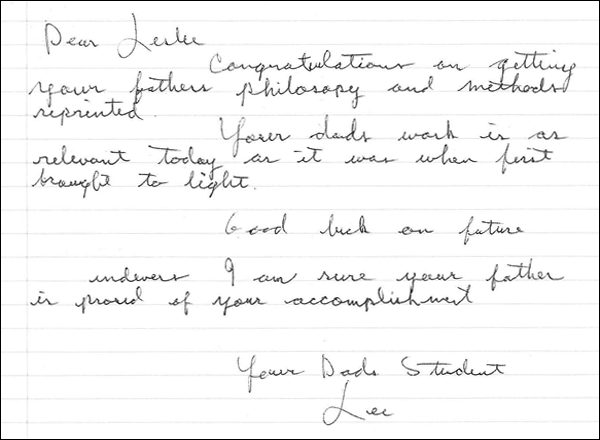 Dear Leslee
Congratulations on getting
your fathers philosapy and methods
reprinted.
Your dads work is as
relevant today as it was when first
brought to light.
Good luck on future
indevers I am sure your father
is proud of your accomplishment
Your Dads Student
Lee